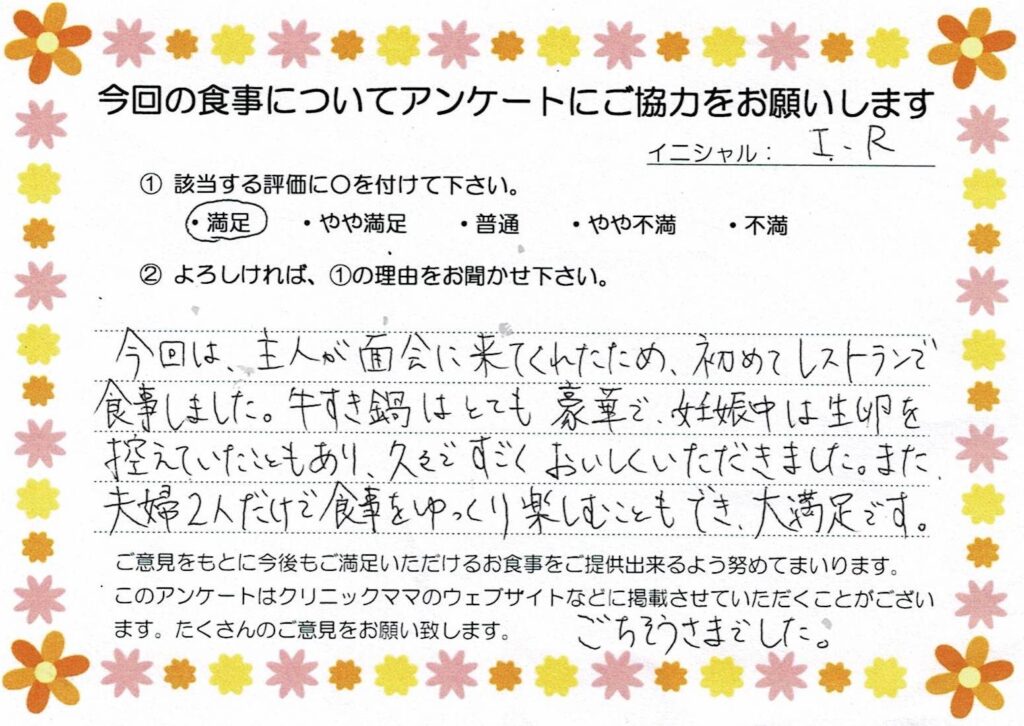 今回の食事についてアンケートにご協力をお願いします
イニシャル： I.R
① 該当する評価に〇を付けて下さい。
・満足 ・やや満足 ・普通 ・やや不満 ・不満
② よろしければ、①の理由をお聞かせ下さい。
今回は、主人が面会に来てくれたため、初めてレストランで
食事しました。牛すき鍋はとても豪華で、妊娠中は生卵を
控えていたこともあり、久々ですごくおいしくいただきました。また、
夫婦2人だけで食事をゆっくり楽しむこともでき、大満足です。
ご意見をもとに今後もご満足いただけるお食事をご提供出来るよう努めてまいります。
このアンケートはクリニックママのウェブサイトなどに掲載させていただくことがござい
ます。たくさんのご意見をお願い致します。
ごちそうさまでした。